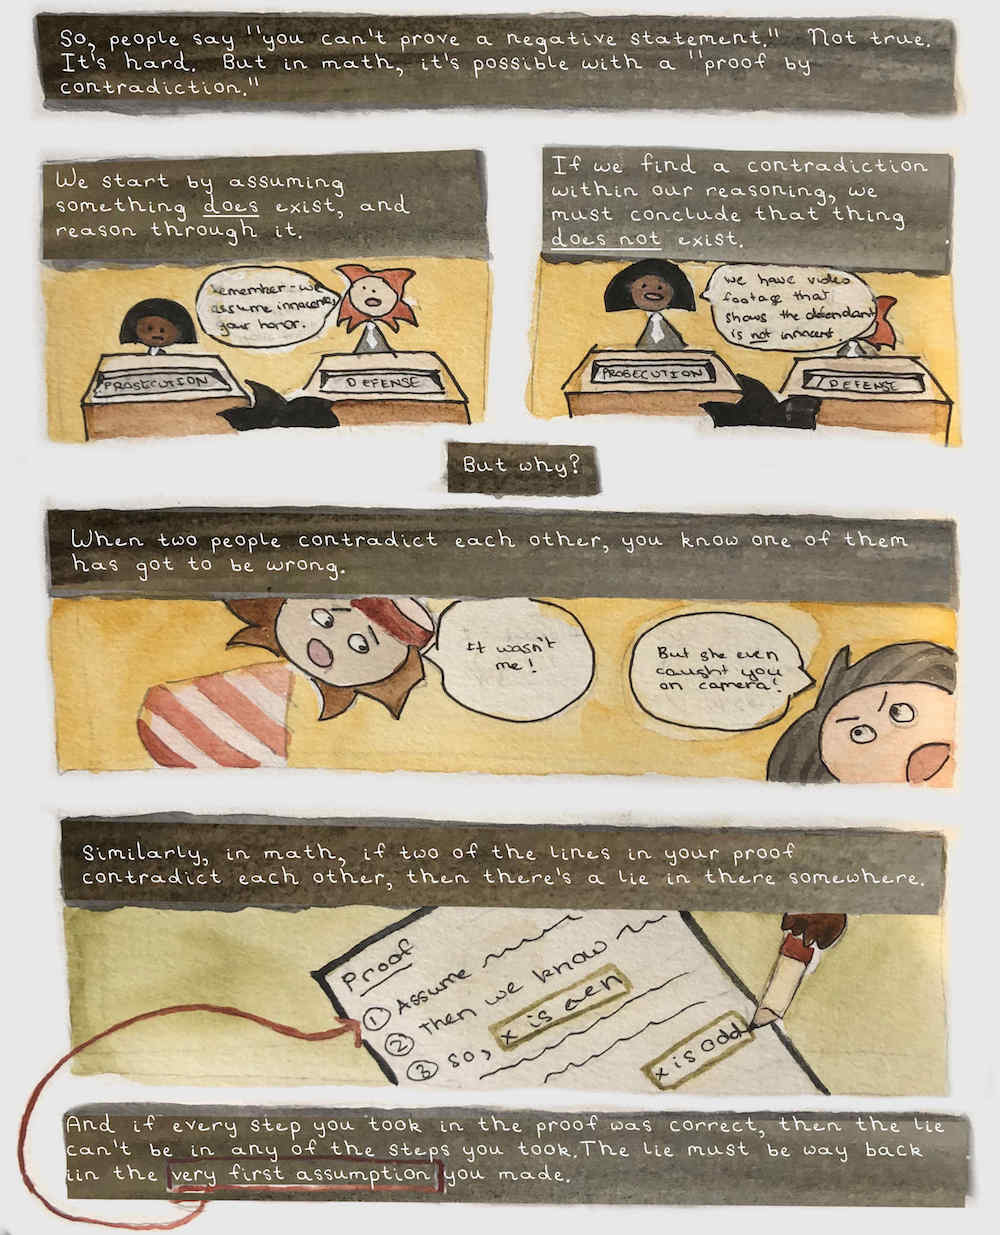 So, people say "you can't prove a negative statement." Not true.
It's hard. But in math, it's possible with a "proof by
contradiction."
We start by assuming
something does exist, and
reason through it.
Remember - we
assume innocence,
your honor.
PROSECUTION
DEFENSE
If we find a contradiction
within our reasoning, we
must conclude that thing
does not exist.
we have video
footage that
shows the defendant
is not innocent.
PROSECUTION
DEFENSE
But why?
When two people contradict each other, you know one of them
has got to be wrong.
It wasn't
me!
But she even
caught you
on camera!
Similarly, in math, if two of the lines in your proof
contradict each other, then there's a lie in there somewhere.
Proof
1 Assume
2 Then we know
3 So, x is even
x is odd
And if every step you took in the proof was correct, then the lie
can't be in any of the steps you took.The lie must be way back
iin the very first assumption you made.